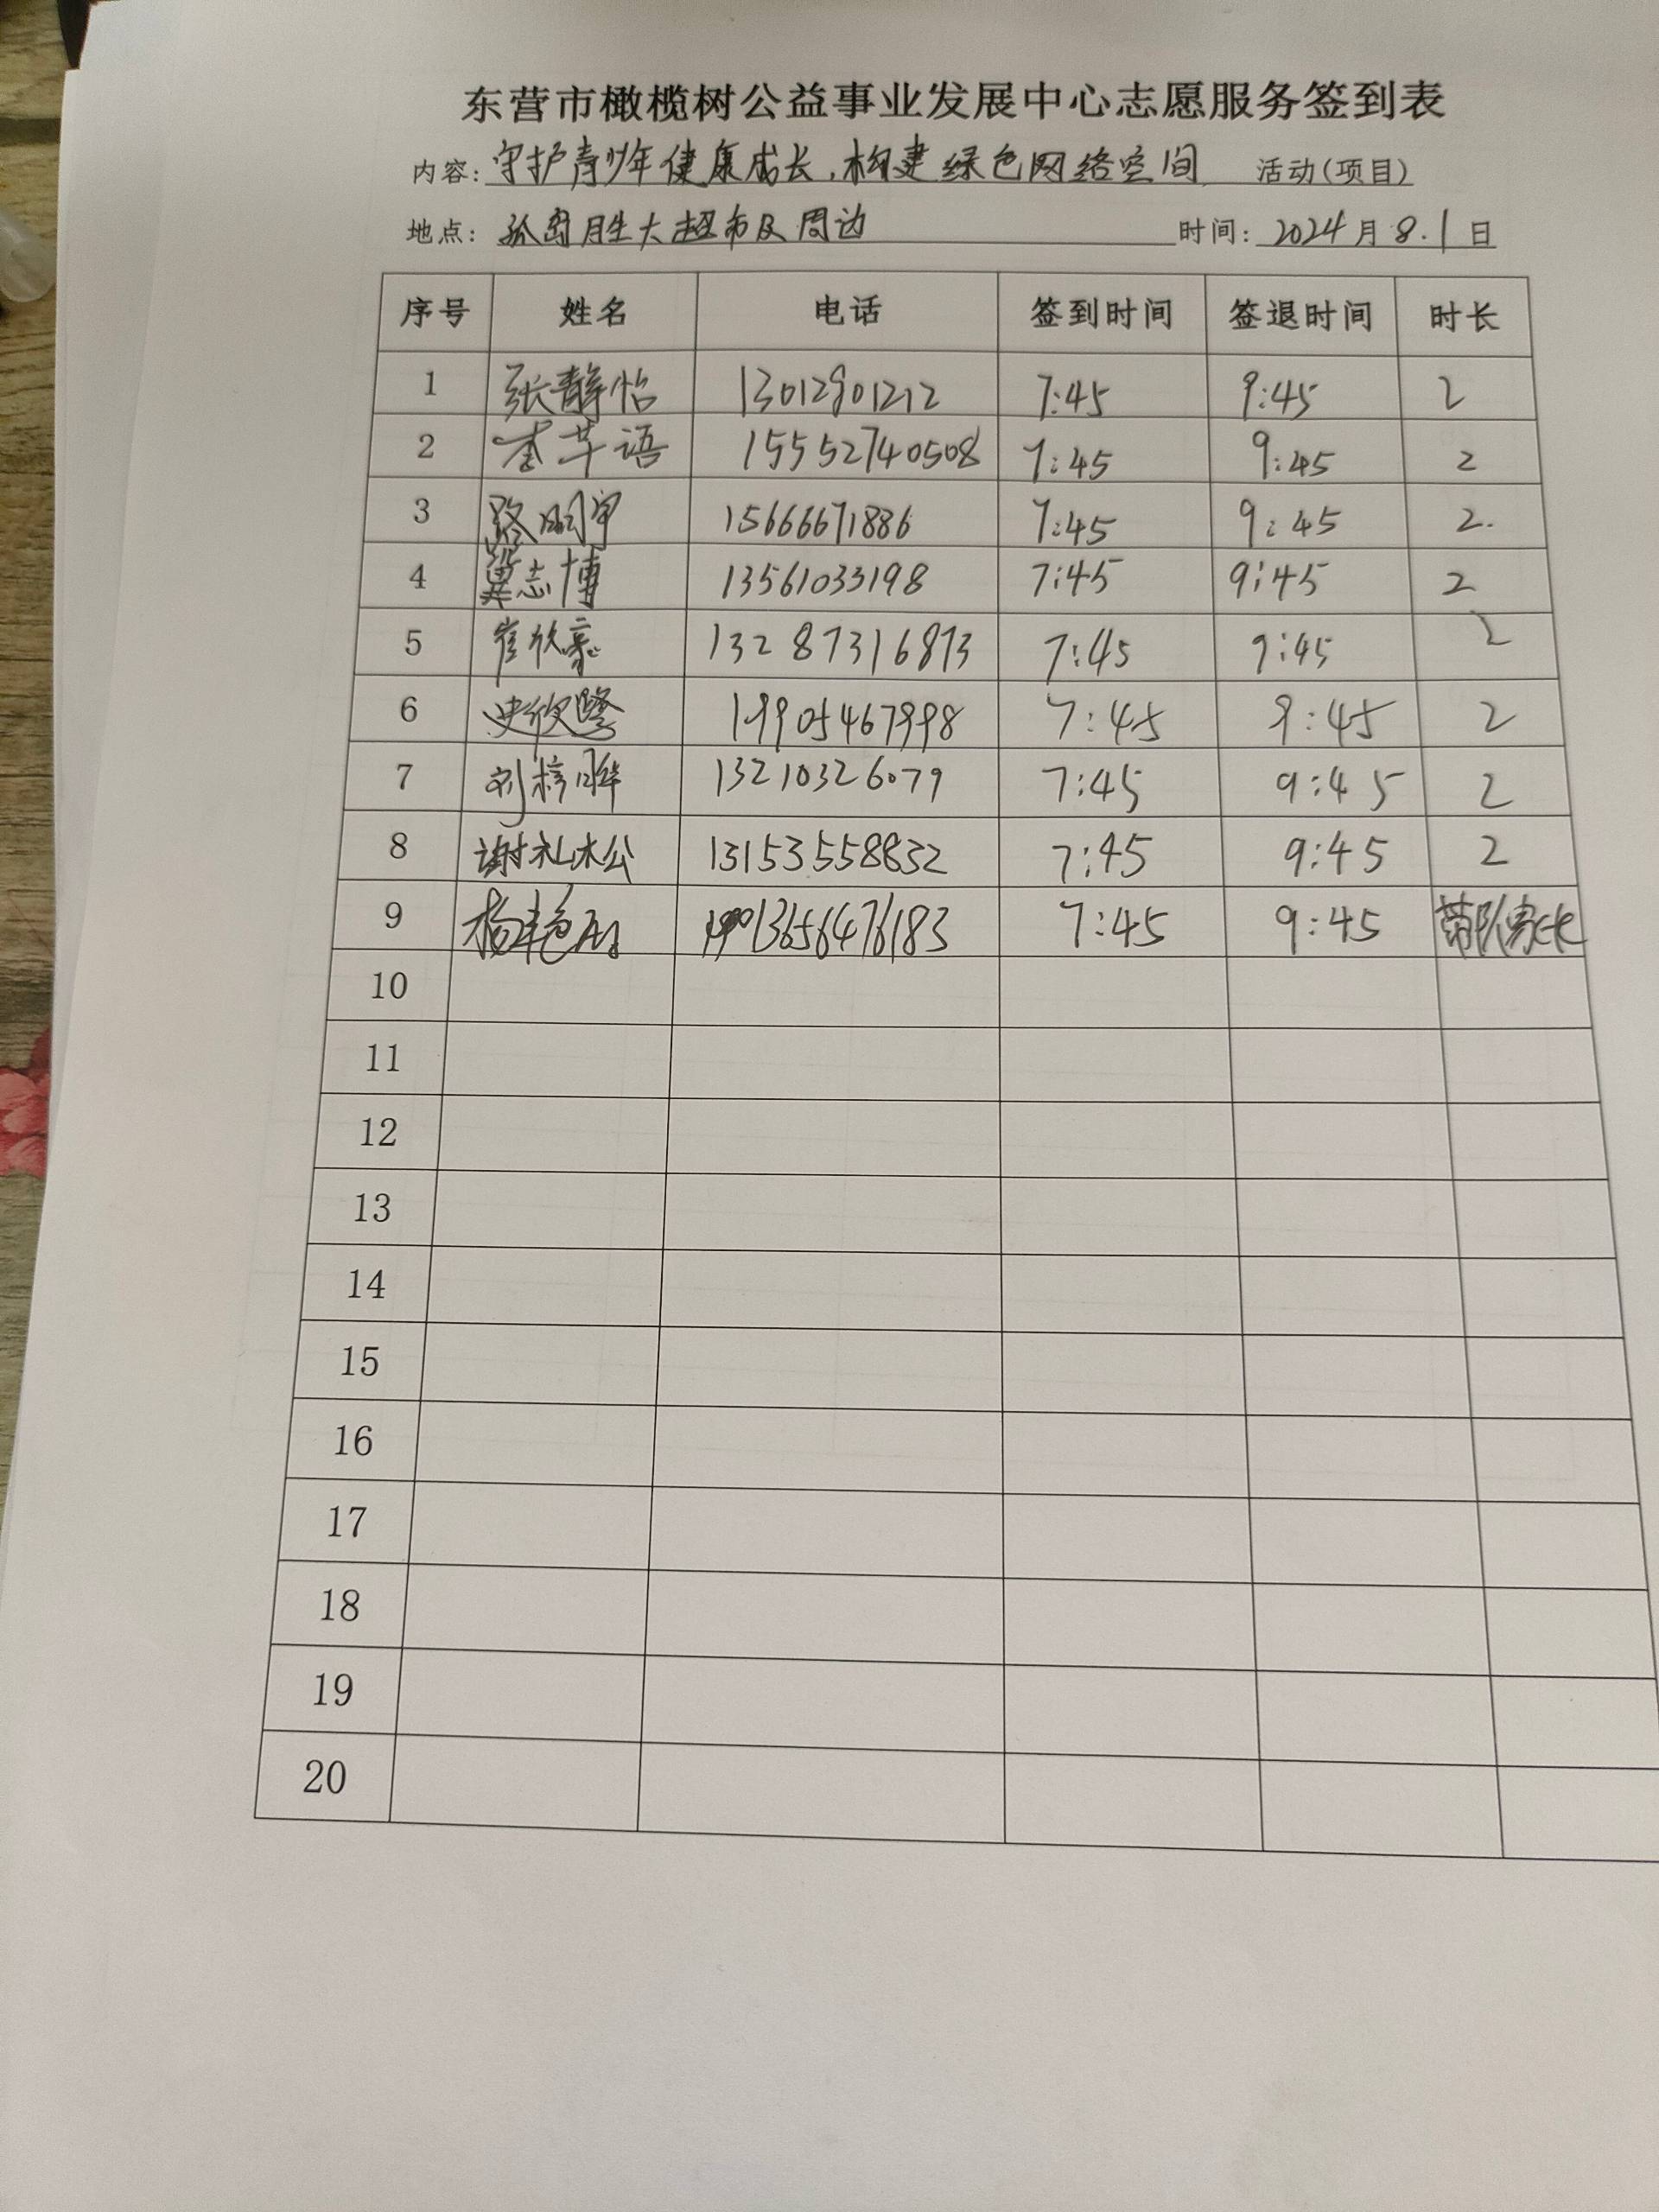 东营市橄榄树公益事业发展中心志愿服务签到表
内容: 守护青少年健康成长,构建绿色网络空间 活动(项目)
地点: 孤岛胜大超市及周边 时间: 2024月8.1日
序号 姓名 电话 签到时间 签退时间 时长
1 张静怡 13012901212 7:45 9:45 2
2 李芊语 15552740508 7:45 9:45 2
3 路明宇 15666671886 7:45 9:45 2.
4 冀志博 13561033198 7:45 9:45 2
5 崔欣豪 13287316873 7:45 9:45 2
6 史欣 19905467998 7:45 9:45 2
7 刘梓晔 13210326079 7:45 9:45 2
8 谢礼松 13153558832 7:45 9:45 2
9 杨艳 13656476183 7:45 9:45 带队家长
10
11
12
13
14
15
16
17
18
19
20